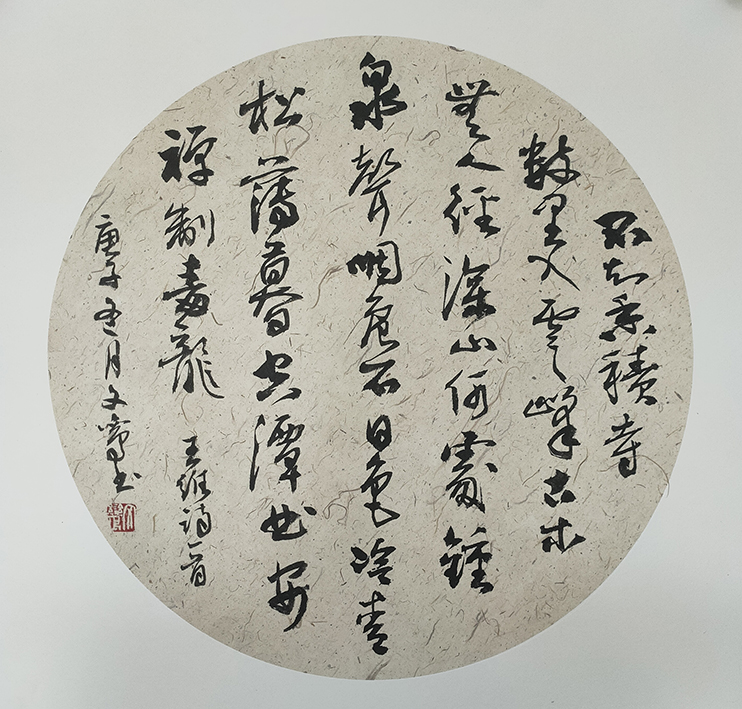 不知香積寺
數里入雲峰古木
無人徑深山何處鐘
泉聲咽危石日色冷青
松薄暮空潭曲安
禪制毒龍
王維詩一首
庚子月文書